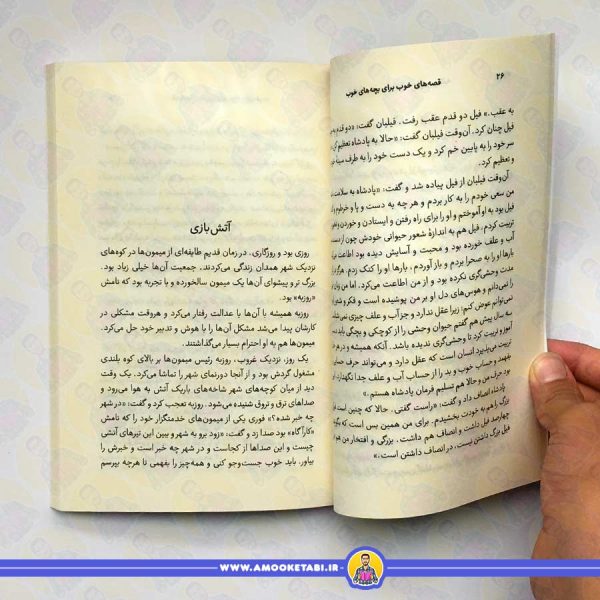 ۲۶
قصه‌های خوب برای بچه‌های خوب
به عقب.» فیل دو قدم عقب رفت. فیلبان گفت: «دو قدم
فیل چنان کرد. آن‌وقت فیلبان گفت: «حالا به پادشاه تعظیم
سر خود را به پایین خم کرد و یک دست خود را به طرف سینه
و تعظیم کرد.
آن‌وقت فیلبان از فیل پیاده شد و گفت: «پادشاه به سلامت
من سعی خودم را به کار بردم و هر چه به دست و پا و خرطوم
فیل بود به او آموختم و او را برای راه رفتن و ایستادن و خوردن
تربیت کردم. فیل هم به اندازهٔ شعور حیوانی خودش چون از دست
آب و علف خورده بود و محبت و آسایش دیده بود اطاعت
او را به صحرا بردم و باز آوردم، بارها او را کتک زدم.
مدت وحشی‌گری نکرده بود و از من اطاعت می‌کرد. اما من
را نمی‌دانم و هوس‌های دل او بر من پوشیده است و فکر و
نمی‌توانم عوض کنم؛ زیرا عقل ندارد و جز آب و علف چیزی
سه سال پیش هم گفتم حیوان وحشی را از کوچکی و بچگی باید
آموز و تربیت کرد تا وحشی‌گری ندیده باشد. آنکه همیشه و در
تربیت می‌پذیرد انسان است که عقل دارد و می‌تواند حرف
بفهمد و حساب خوب و بد را از حساب آب و علف جدا نگهدارد.
بود حرف من و حالا هم تسلیم فرمان پادشاه هستم.»
پادشاه انصاف داد و گفت: «راست گفتی. حالا که چنین است
بزرگ را هم به خودت بخشیدیم. برای من همین بس است که
چهارصد فیل داشت و انصاف هم داشت. بزرگی و افتخار من
فیل بزرگ داشتن نیست، در انصاف داشتن است.»
آتش‌بازی
روزی بود و روزگاری. در زمان قدیم طایفه‌ای از میمون‌ها در کوه‌های
نزدیک شهر همدان زندگی می‌کردند. جمعیت آن‌ها خیلی زیاد بود.
بزرگ تر و پیشوای آن‌ها یک میمون سالخورده و با تجربه بود که نامش
«روزبه» بود.
روزبه همیشه با آن‌ها با عدالت رفتار می‌کرد و هروقت مشکلی در
کارشان پیدا می‌شد مشکل آن‌ها را با هوش و تدبیر خود حل می‌کرد.
میمون‌ها هم به او احترام بسیار می‌گذاشتند.
یک روز، نزدیک غروب، روزبه رئیس میمون‌ها بر بالای کوه بلندی
مشغول گردش بود و از آنجا دورنمای شهر را تماشا می‌کرد. یک وقت
دید از میان کوچه‌های شهر شاخه‌های باریک آتش به هوا می‌رود و
صداهای ترق و تروق شنیده می‌شود. روزبه تعجب کرد و گفت: «در شهر
چه خبر شده؟» فوری یکی از میمون‌های خدمتگزار خود را که نامش
«کارآگاه» بود صدا زد و گفت: «زود برو به شهر و ببین این تیرهای آتشی
چیست و این صداها از کجاست و در شهر چه خبر است و خبرش را
بیاور. باید خوب جست‌وجو کنی و همه‌چیز را بفهمی تا هرچه بپرسم
WWW.AMOOKETABI.IR